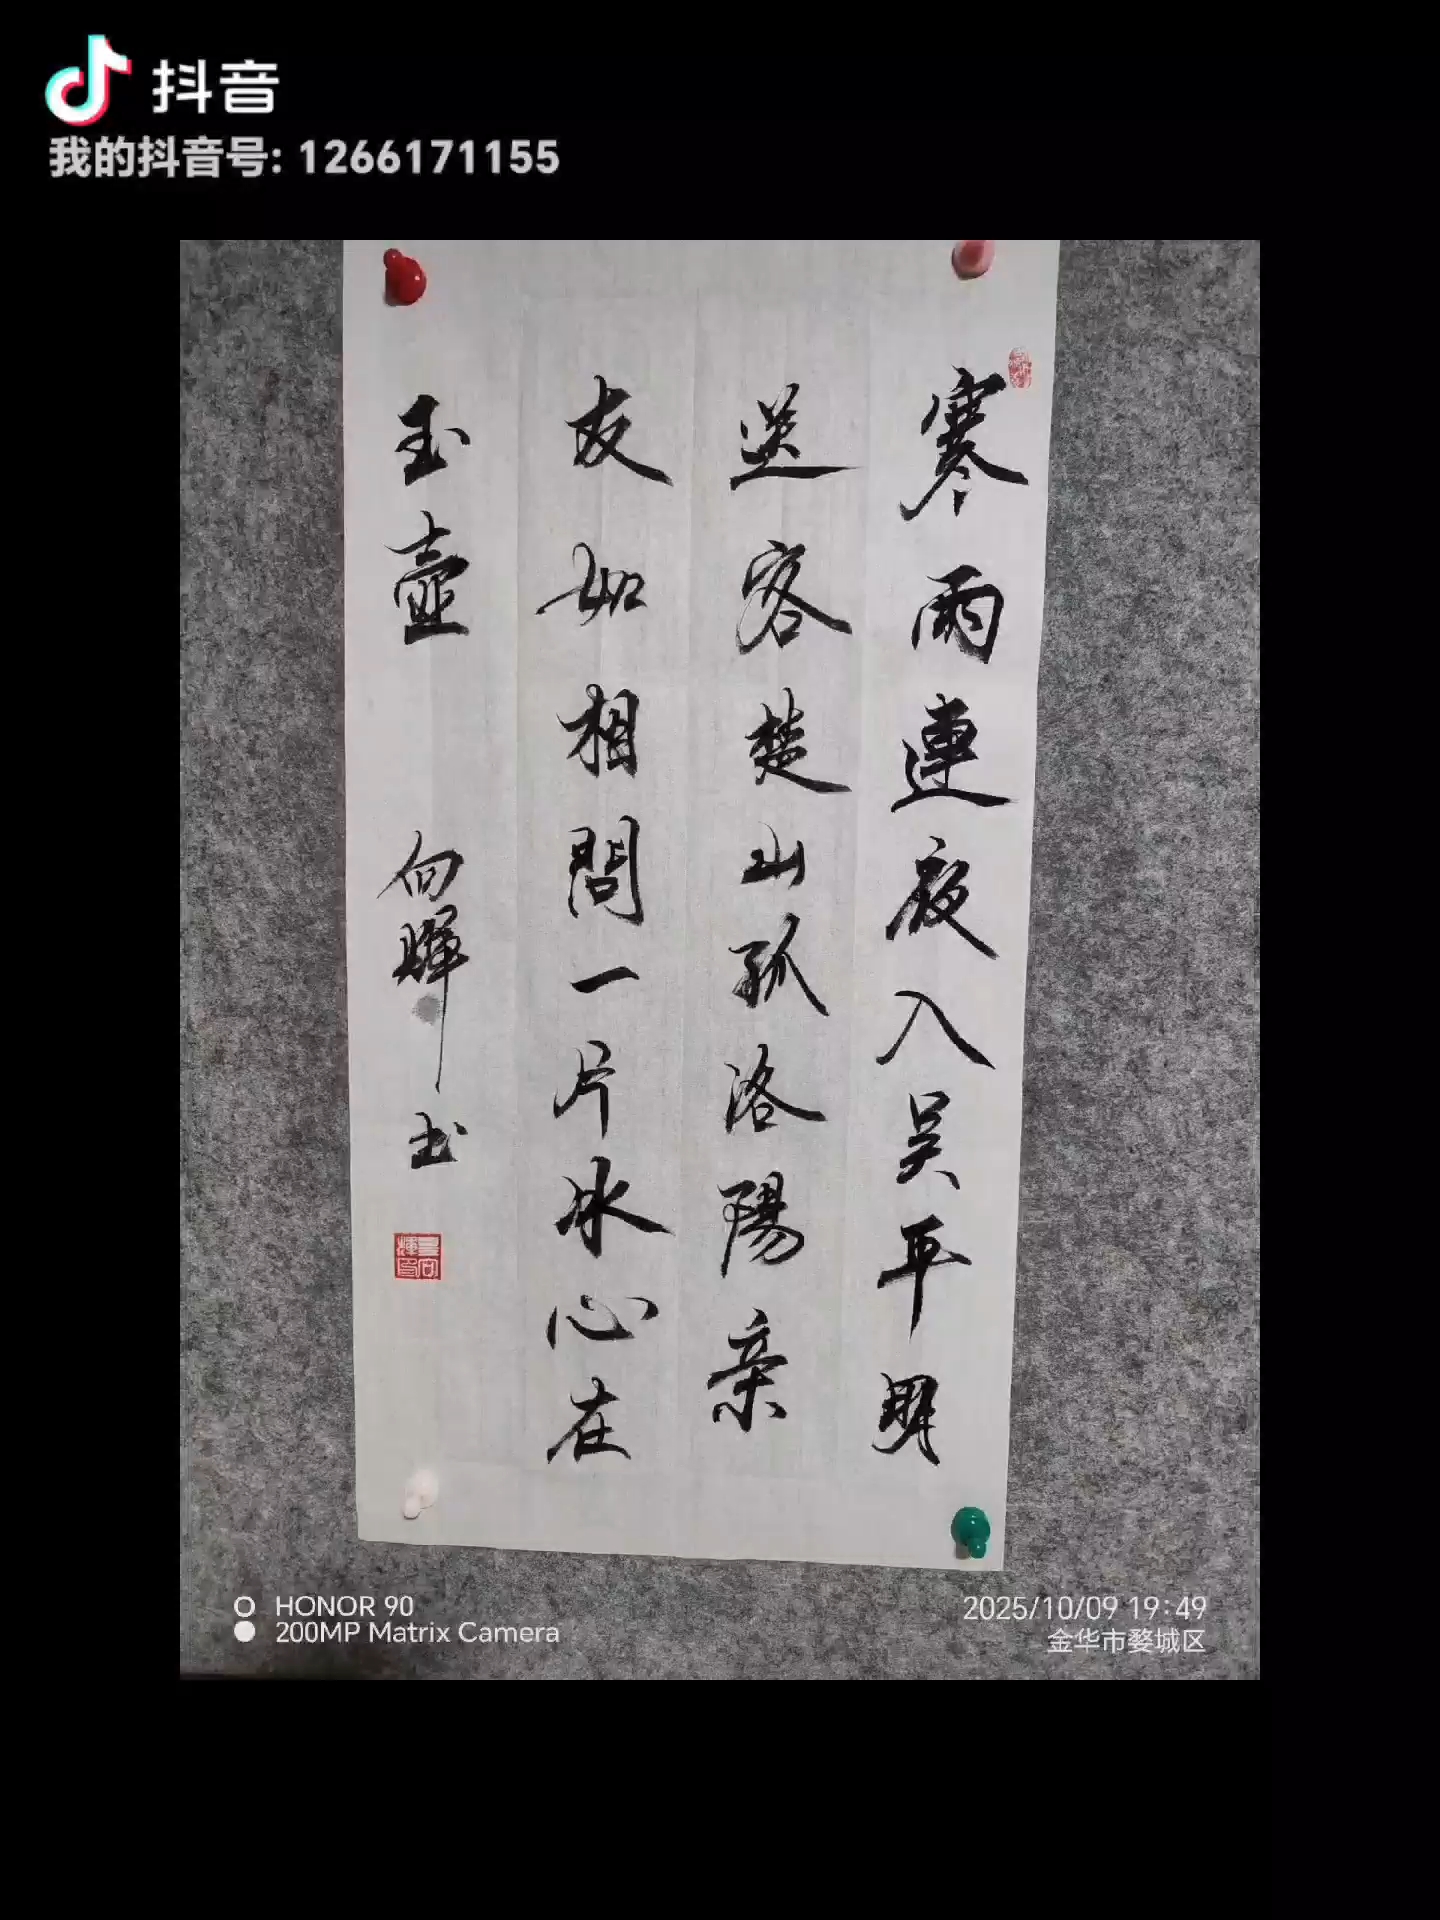 抖音
我的抖音号: 1266171155
寒雨連夜入吴平明
送客楚山孤洛陽亲
友如相問一片冰心在
玉壶
向暉书
HONOR 90
200MP Matrix Camera
2025/10/09 19:49
金华市婺城区